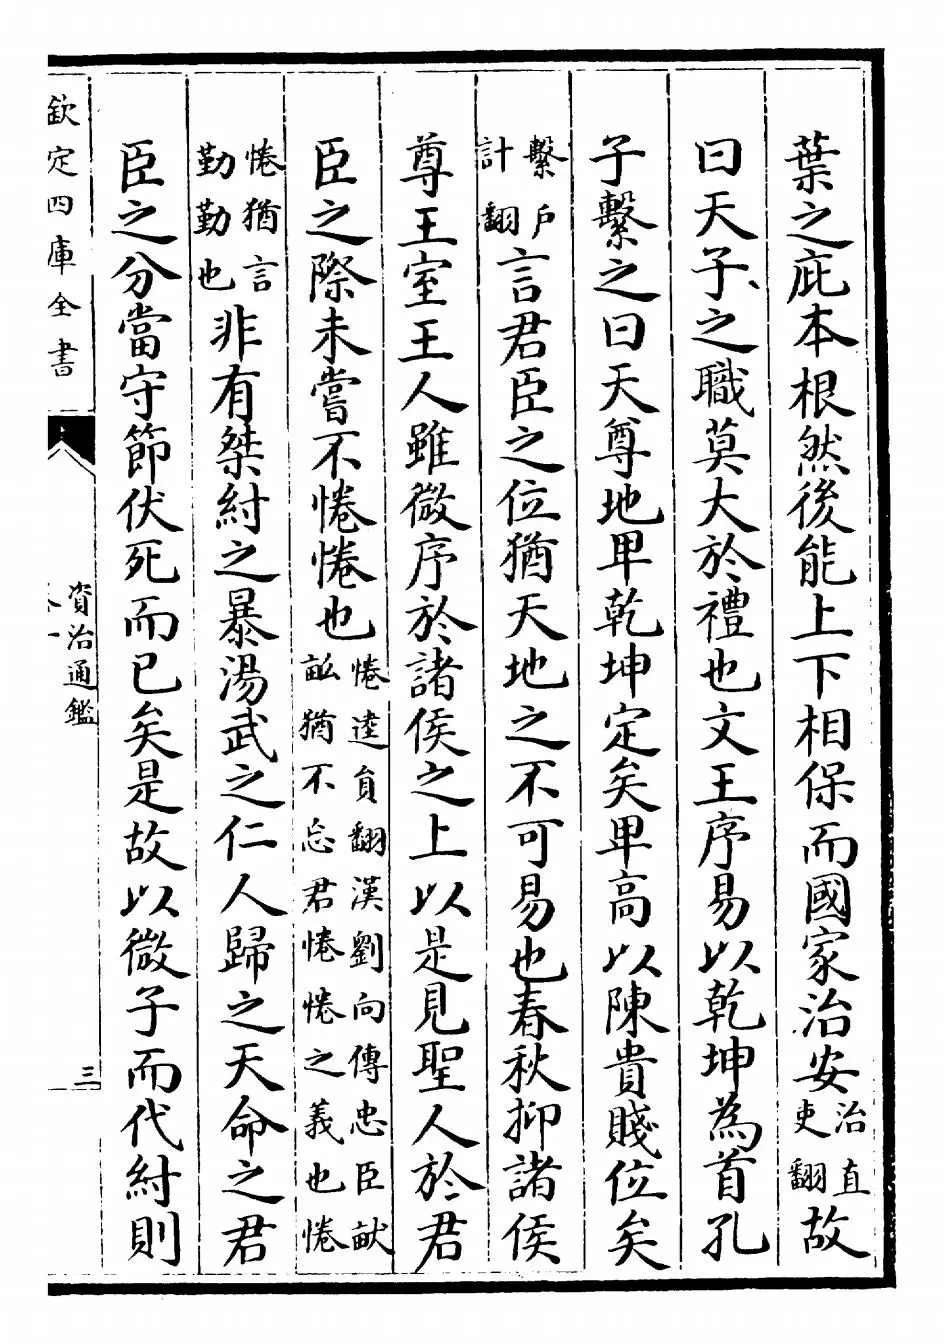 葉之庇本根然後能上下相保而國家治安治直吏翻故
曰天子之職莫大於禮也文王序易以乾坤為首孔
子繫之曰天尊地卑乾坤定矣卑高以陳貴賤位矣
繫戶計翻言君臣之位猶天地之不可易也春秋抑諸侯
尊王室王人雖微序於諸侯之上以是見聖人於君
臣之際未嘗不惓惓也惓逵員翻漢劉向傳忠臣畎畝猶不忘君惓惓之義也惓
惓猶言勤勤也非有桀紂之暴湯武之仁人歸之天命之君
臣之分當守節伏死而已矣是故以微子而代紂則
欽定四庫全書
資治通鑑
卷一
三